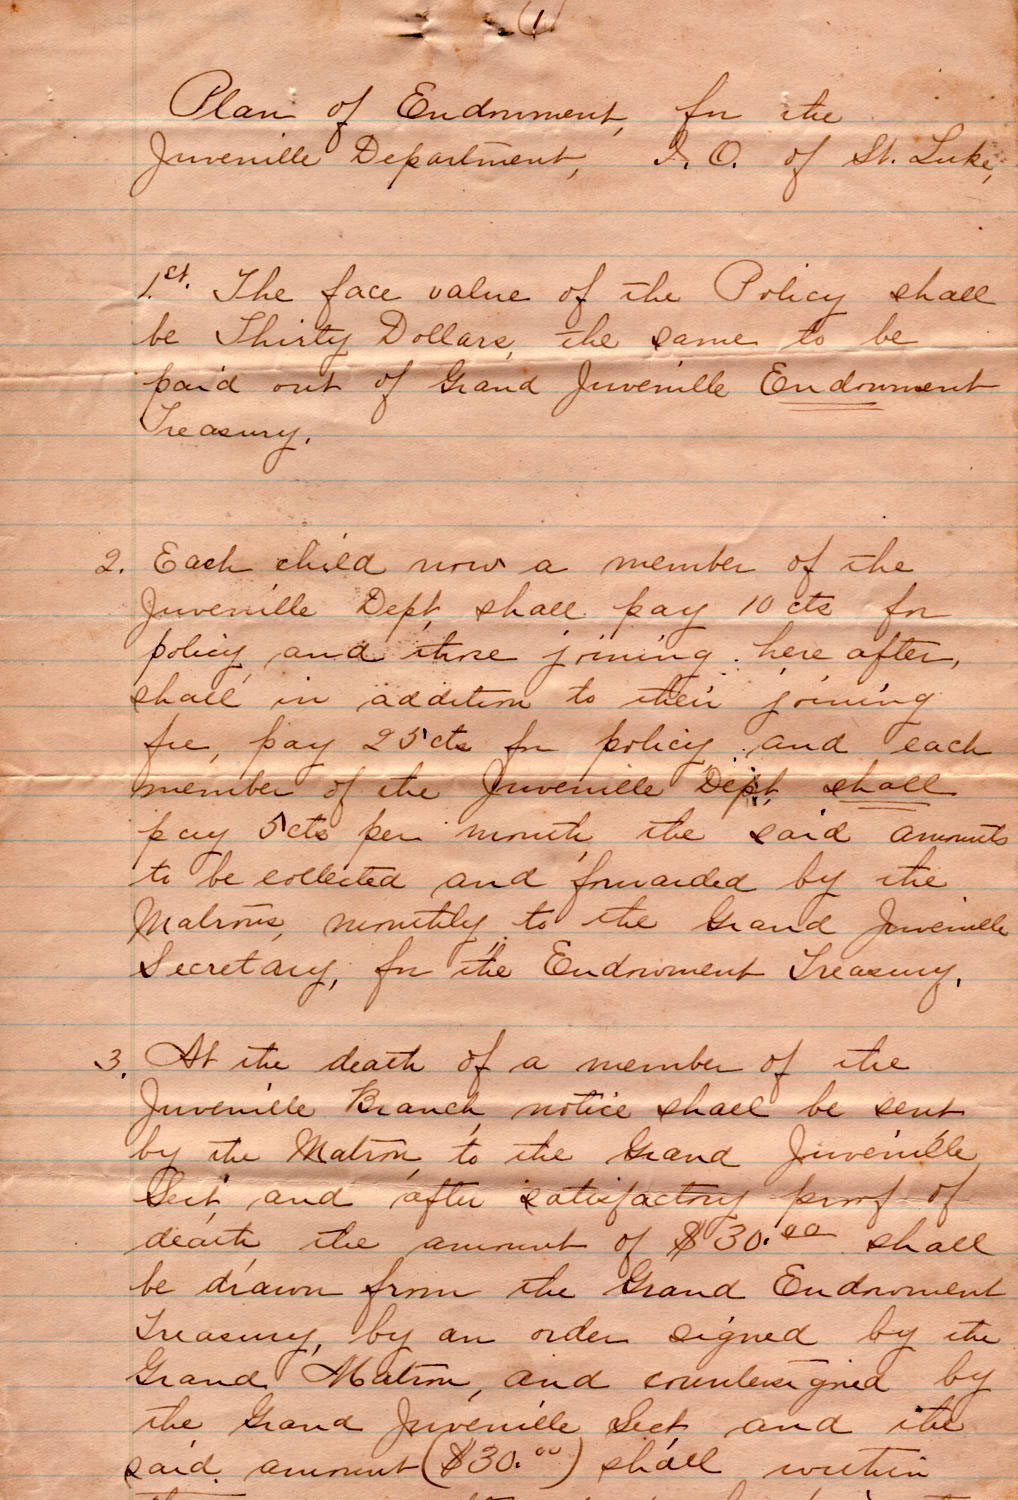 (1)
Plan of Endowment, for the
Juvenille Department, I. O. of St. Luke,
1.st. The face value of the Policy shall
be Thirty Dollars, the same to be
paid out of Grand Juvenille Endowment
Treasury.
2. Each child now a member of the
Juvenille Dept, shall pay 10 cts for
policy, and those joining here after,
shall in addition to their joining
fee, pay 25 cts for policy, and each
member of the Juvenille Dept, shall
pay 5 cts per month, the said amounts
to be collected and forwarded by the
Matrons, monthly, to the Grand Juvenille
Secretary, for the Endowment Treasury.
3. At the death of a member of the
Juvenille Branch, notice shall be sent
by the Matron, to the Grand Juvenille
Sect, and after satisfactory proof of
death the amount of $30.00 shall
be drawn from the Grand Endowment
Treasury, by an order signed by the
Grand Matron, and countersigned by
the Grand Juvenille Sect, and the
said amount ($30.00) shall within